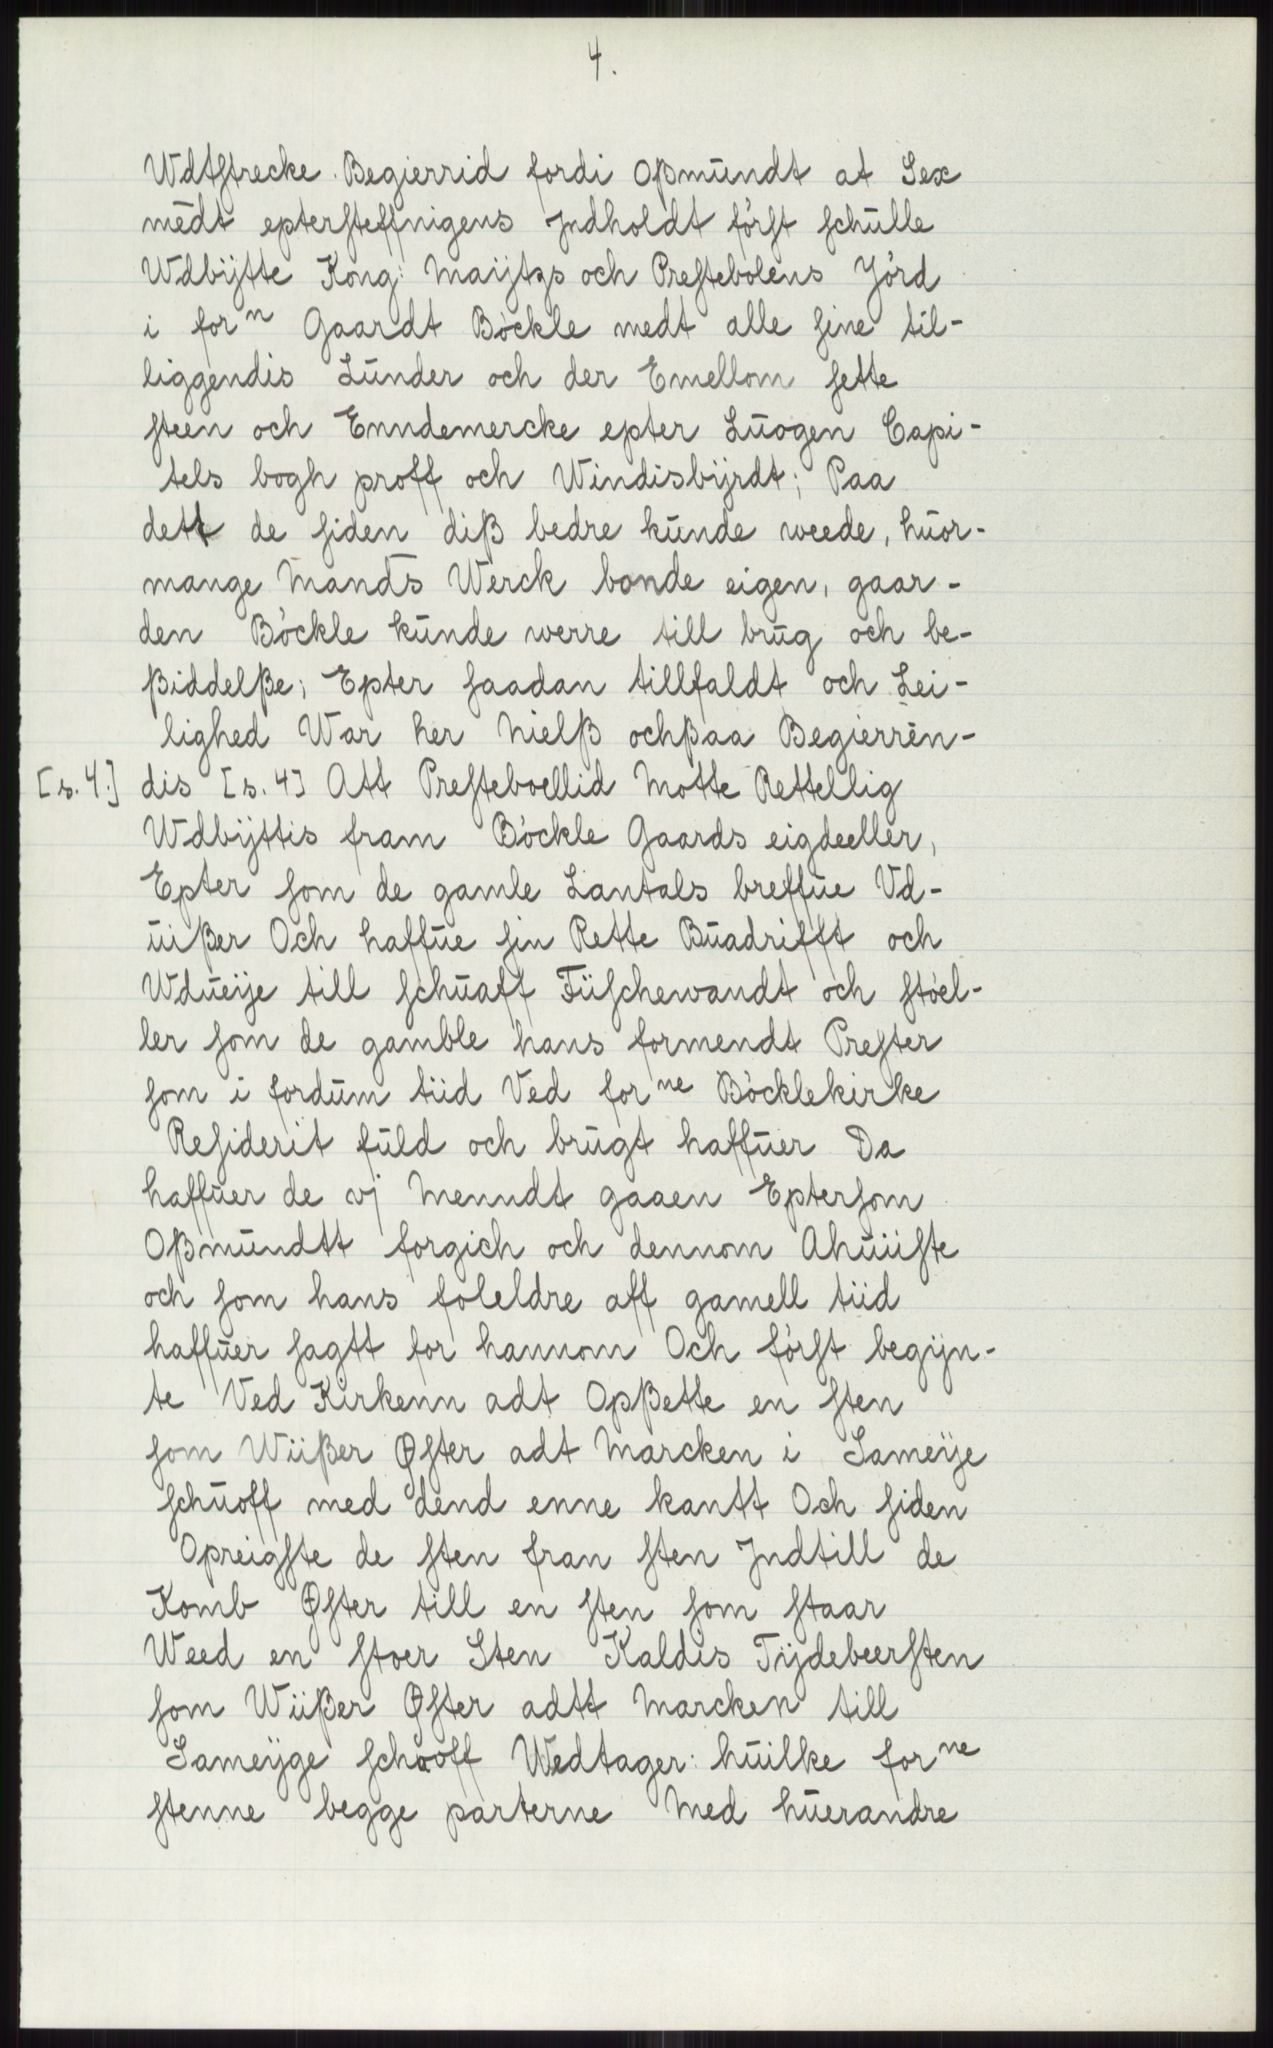 4.
Wdtstrecke. Begierrid fordi Oßmundt at Sex
medt eptersteffnigens Jndholdt först schulle
Wdbijtte Kong: Maijtzs och Prestebolens Jörd
i forⁿ Gaardt Böckle medt alle sine til-
liggendis Lunder och der Emellom sette
steen och Enndemercke epter Luogen Capi-
tels bogh proff och Windisbijrdt; Paa
dett de siden diß bedre kunde weede, huor-
mange Mands Werck bonde eigen, gaar-
den Böckle kunde werre till brug och be-
ßiddelße; Epter saadan tillfaldt och Lei-
lighed War her Nielß ochßaa Begierren-
[s. 4.] dis [s. 4] Att Presteboellid Motte Rettellig
Wdbijttis fram Böckle Gaards eigdeeller,
Epter som de gamle Lantals breffue Vd-
uißer Och haffue sin Rette Buadrifft och
Wdueije till schuaff Füschewandt och stöel-
ler som de gamble hans formendt Prester
som i fordum tiid Ved forⁿᵉ Böcklekirke
Residerit fuld och brugt haffuer Da
haffuer de vj Menndt gaaen Eptersom
Oßmundtt forgich och dennom Ahuiiste
och som hans foleldre aff gamell tiid
haffuer sagtt for hannom Och först begijn-
te Ved Kirkenn adt Opßette en sten
som Wiißer Øster adt Marcken i Sameije
schuoff med dend enne kantt Och siden
Opreigste de sten fran sten Jndtill de
Komb Øster till en sten som staar
Weed en stoer Sten Kaldis Tijdebeersten
som Wiißer Øster adtt Marcken till
Sameijge schooff Wedtager: huilke forⁿᵉ
stenne begge parterne Med huerandre